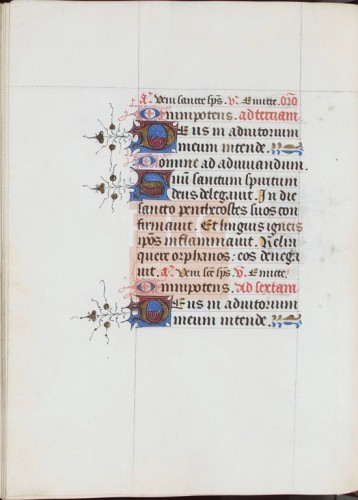 A. Veni sancte sps. V. Emitte. oro
Omnipotens. ad terciam
Deus in adiutorium
meum intende.
Domine ad adiuuandum.
Suum sanctum spiritum
deus delegauit. In die
sancto penthecostes suos con
firmauit. Et linguis igneis
ipos inflammauit. Relin
quere orphanos: eos denega
uit. A. Veni sce sps. V. Emitte.
Omnipotens. Ad sextam
Deus in adiutorium
meum intende.